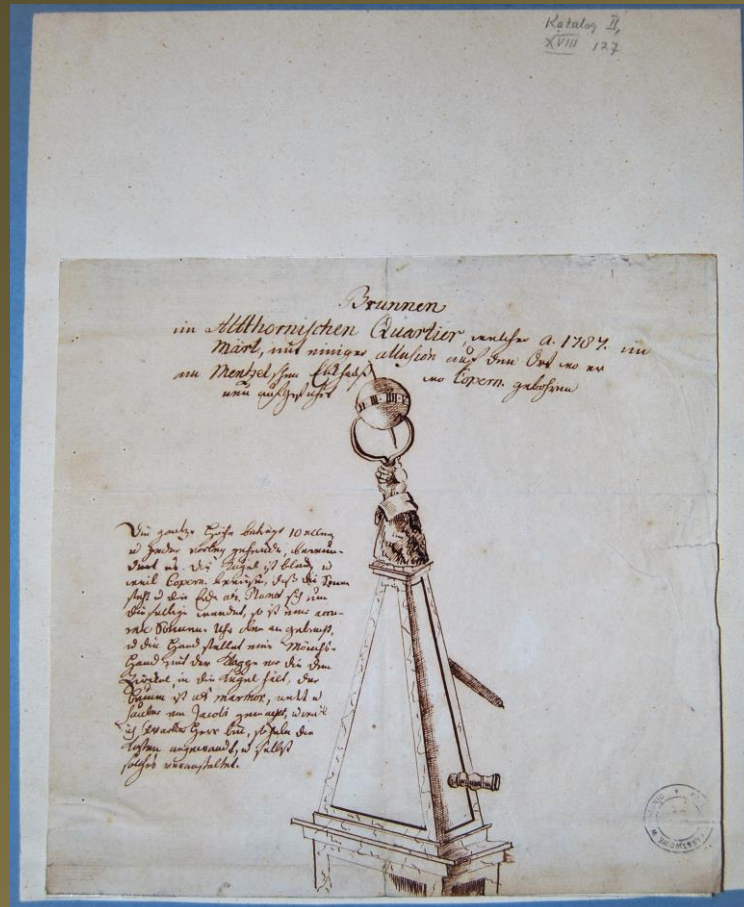 Katalog II,
XVIII 127
Brunnen
im Altthornischen Quartier, welcher a. 1787. im
Märt, mit einiger allusion auf den Ort wo er
am Mentzelschen Eckhause wo Copern. gebohren
neu aufgeführt
Die gantze Höhe beträgt 10 ellen
u jeder vorbey gehende, bewun-
dert es. Die Kugel ist blau, u
weil Copern. bewiesen, daß die Sonne
steht u die Erde als Planet sich um
dieselbige wendet, so ist eine
Sonnen-Uhr dran angebracht,
u die Hand stellet eine Mönchs-
Hand mit der Kappe vor die den
Zirckel, in die Kugel hält, der
Brunn ist als marmor, nett u
sauber von Jacobi gemacht,
ich Herr bin, habe die
Kosten angewandt, u selbst
solches veranstaltet.
II III IIII